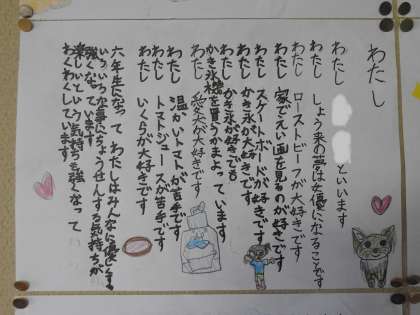 わたし
わたし といいます
わたし しょう来の夢は女優になることです
わたし ローストビーフが大好きです
わたし 家でえい画を見るのが好きです
わたし スケートボードが好きです
わたし かき氷が大好きです
わたし かき氷が好きで
かき氷機を買うかまよっています
わたし 愛犬が大好きです
わたし 温かいトマトが苦手です
わたし トマトジュースが苦手です
わたし いくらが大好きです
六年生になって わたしはみんなに優しく
いろいろな事にちょうせんする気持ちが
強くなっています
楽しいという気持ちも強くなって
わくわくしています